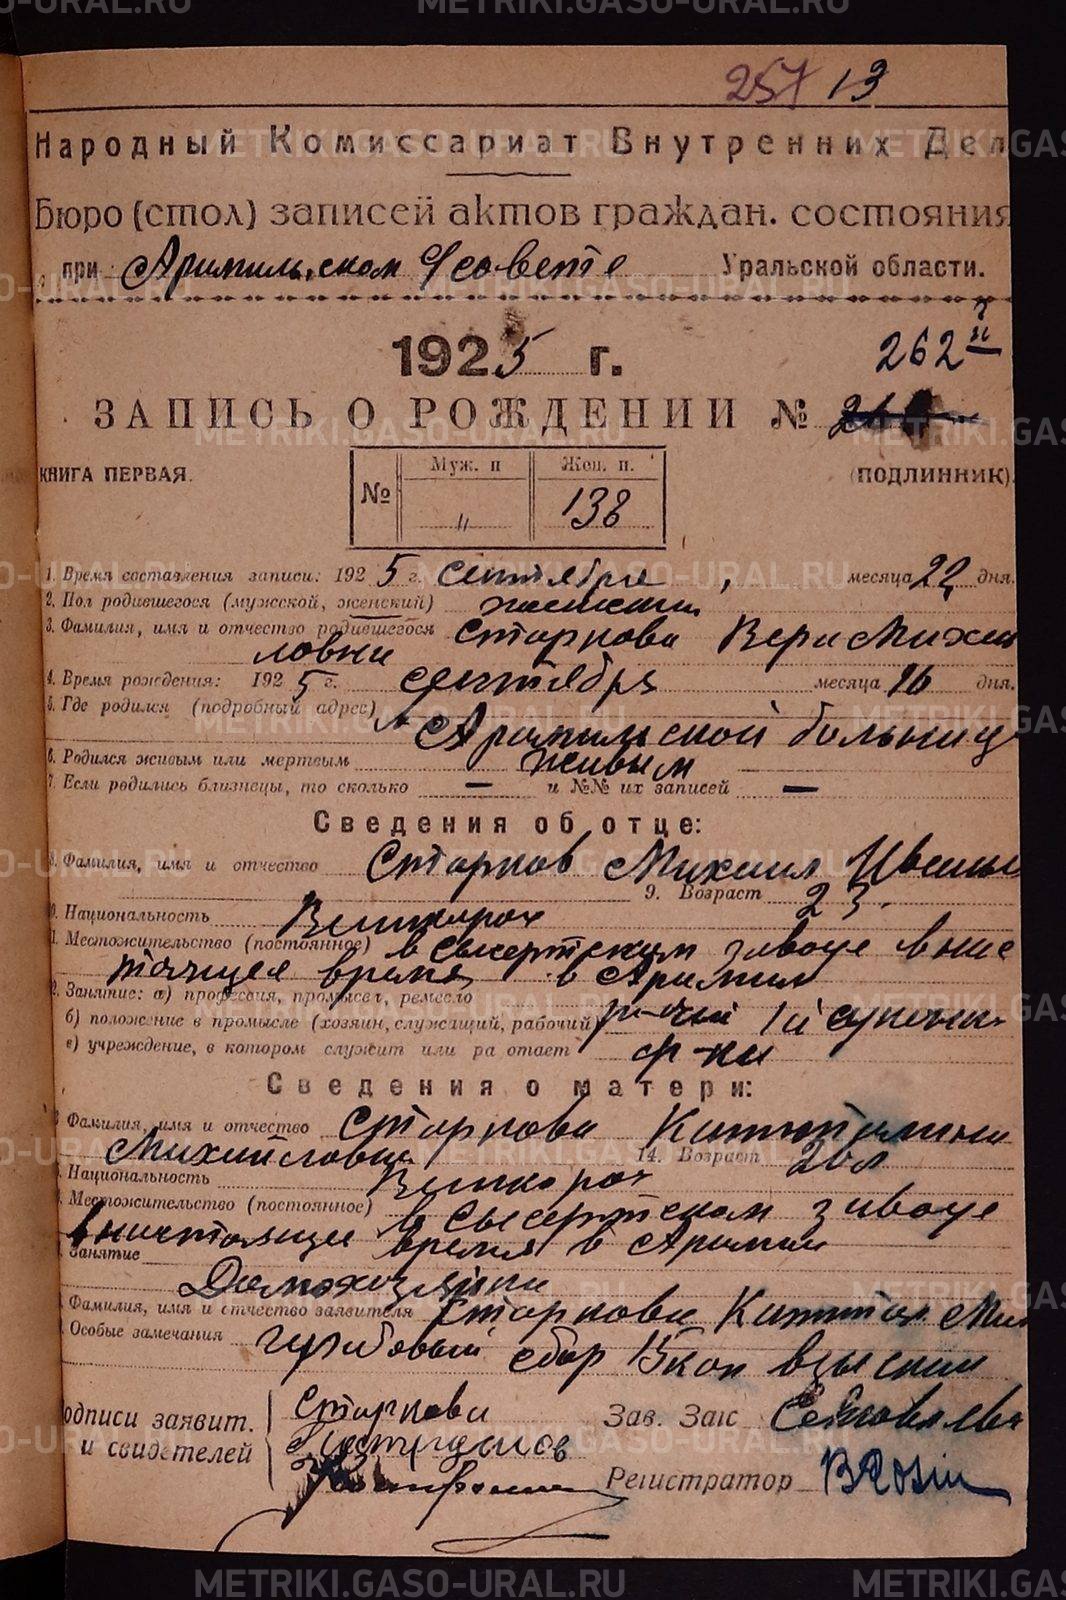 257 13
Народный Комиссариат Внутренних Дел
Бюро (стол) записей актов граждан. состояния
при Арамильском Совете Уральской области.
1925 г.
262
ЗАПИСЬ О РОЖДЕНИИ №
КНИГА ПЕРВАЯ. (ПОДЛИННИК).
№ Муж. п Жен. п.
" 138
1. Время составления записи: 1925 г. сентября, месяца 22 дня.
2. Пол родившегося (мужской, женский) женский
3. Фамилия, имя и отчество родившегося Старкова Вера Михаи
ловна
4. Время рождения: 1925 г. сентября месяца 16 дня.
5. Где родился (подробный адрес)
Арамильской больнице
6. Родился живым или мертвым живым
7. Если родились близнецы, то сколько — и №№ их записей —
Сведения об отце:
8. Фамилия, имя и отчество Старков Михаил Иваны
9. Возраст 23.
10. Национальность
11. Местожительство (постоянное) в Сысертском заводе в нас
тоящее время в Арамил
12. Занятие: а) профессия, промысел, ремесло
б) положение в промысле (хозяин, служащий, рабочий) р-чий 1й суконн.
в) учреждение, в котором служит или работает ф-ки
Сведения о матери:
Фамилия, имя и отчество Старкова
Михайловна 14. Возраст 20 л
Национальность
Местожительство (постоянное) в Сысертском заводе
в настоящее время в Арамили
Занятие
Домохозяйка
Фамилия, имя и отчество заявителя Старкова Мих
Особые замечания гербовый сбор 15 коп взыскан
Подписи заявит. Старкова Зав. Загс
и свидетелей
Регистратор
METRIKI.GASO-URAL.RU